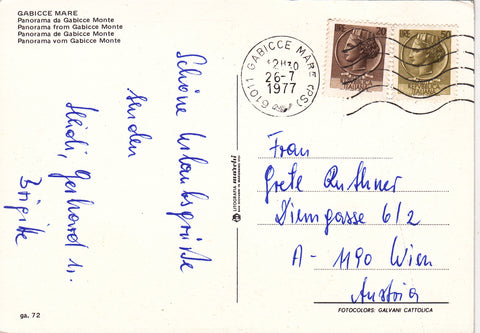 GABICCE MARE
Panorama da Gabicce Monte
Panorama from Gabicce Monte
Panorama de Gabicce Monte
Panorama vom Gabicce Monte
Schöne Urlaubsgrüße
senden
Heidi, Gerhard u.
Brigitte
ga. 72
LITOGRAFIA
61011 GABICCE MARE (PS)
26-7
1977
20
50
Frau
Grete Ruthner
Diemgasse 6/2
A - 1190 Wien
Austria
FOTOCOLORS: GALVANI CATTOLICA